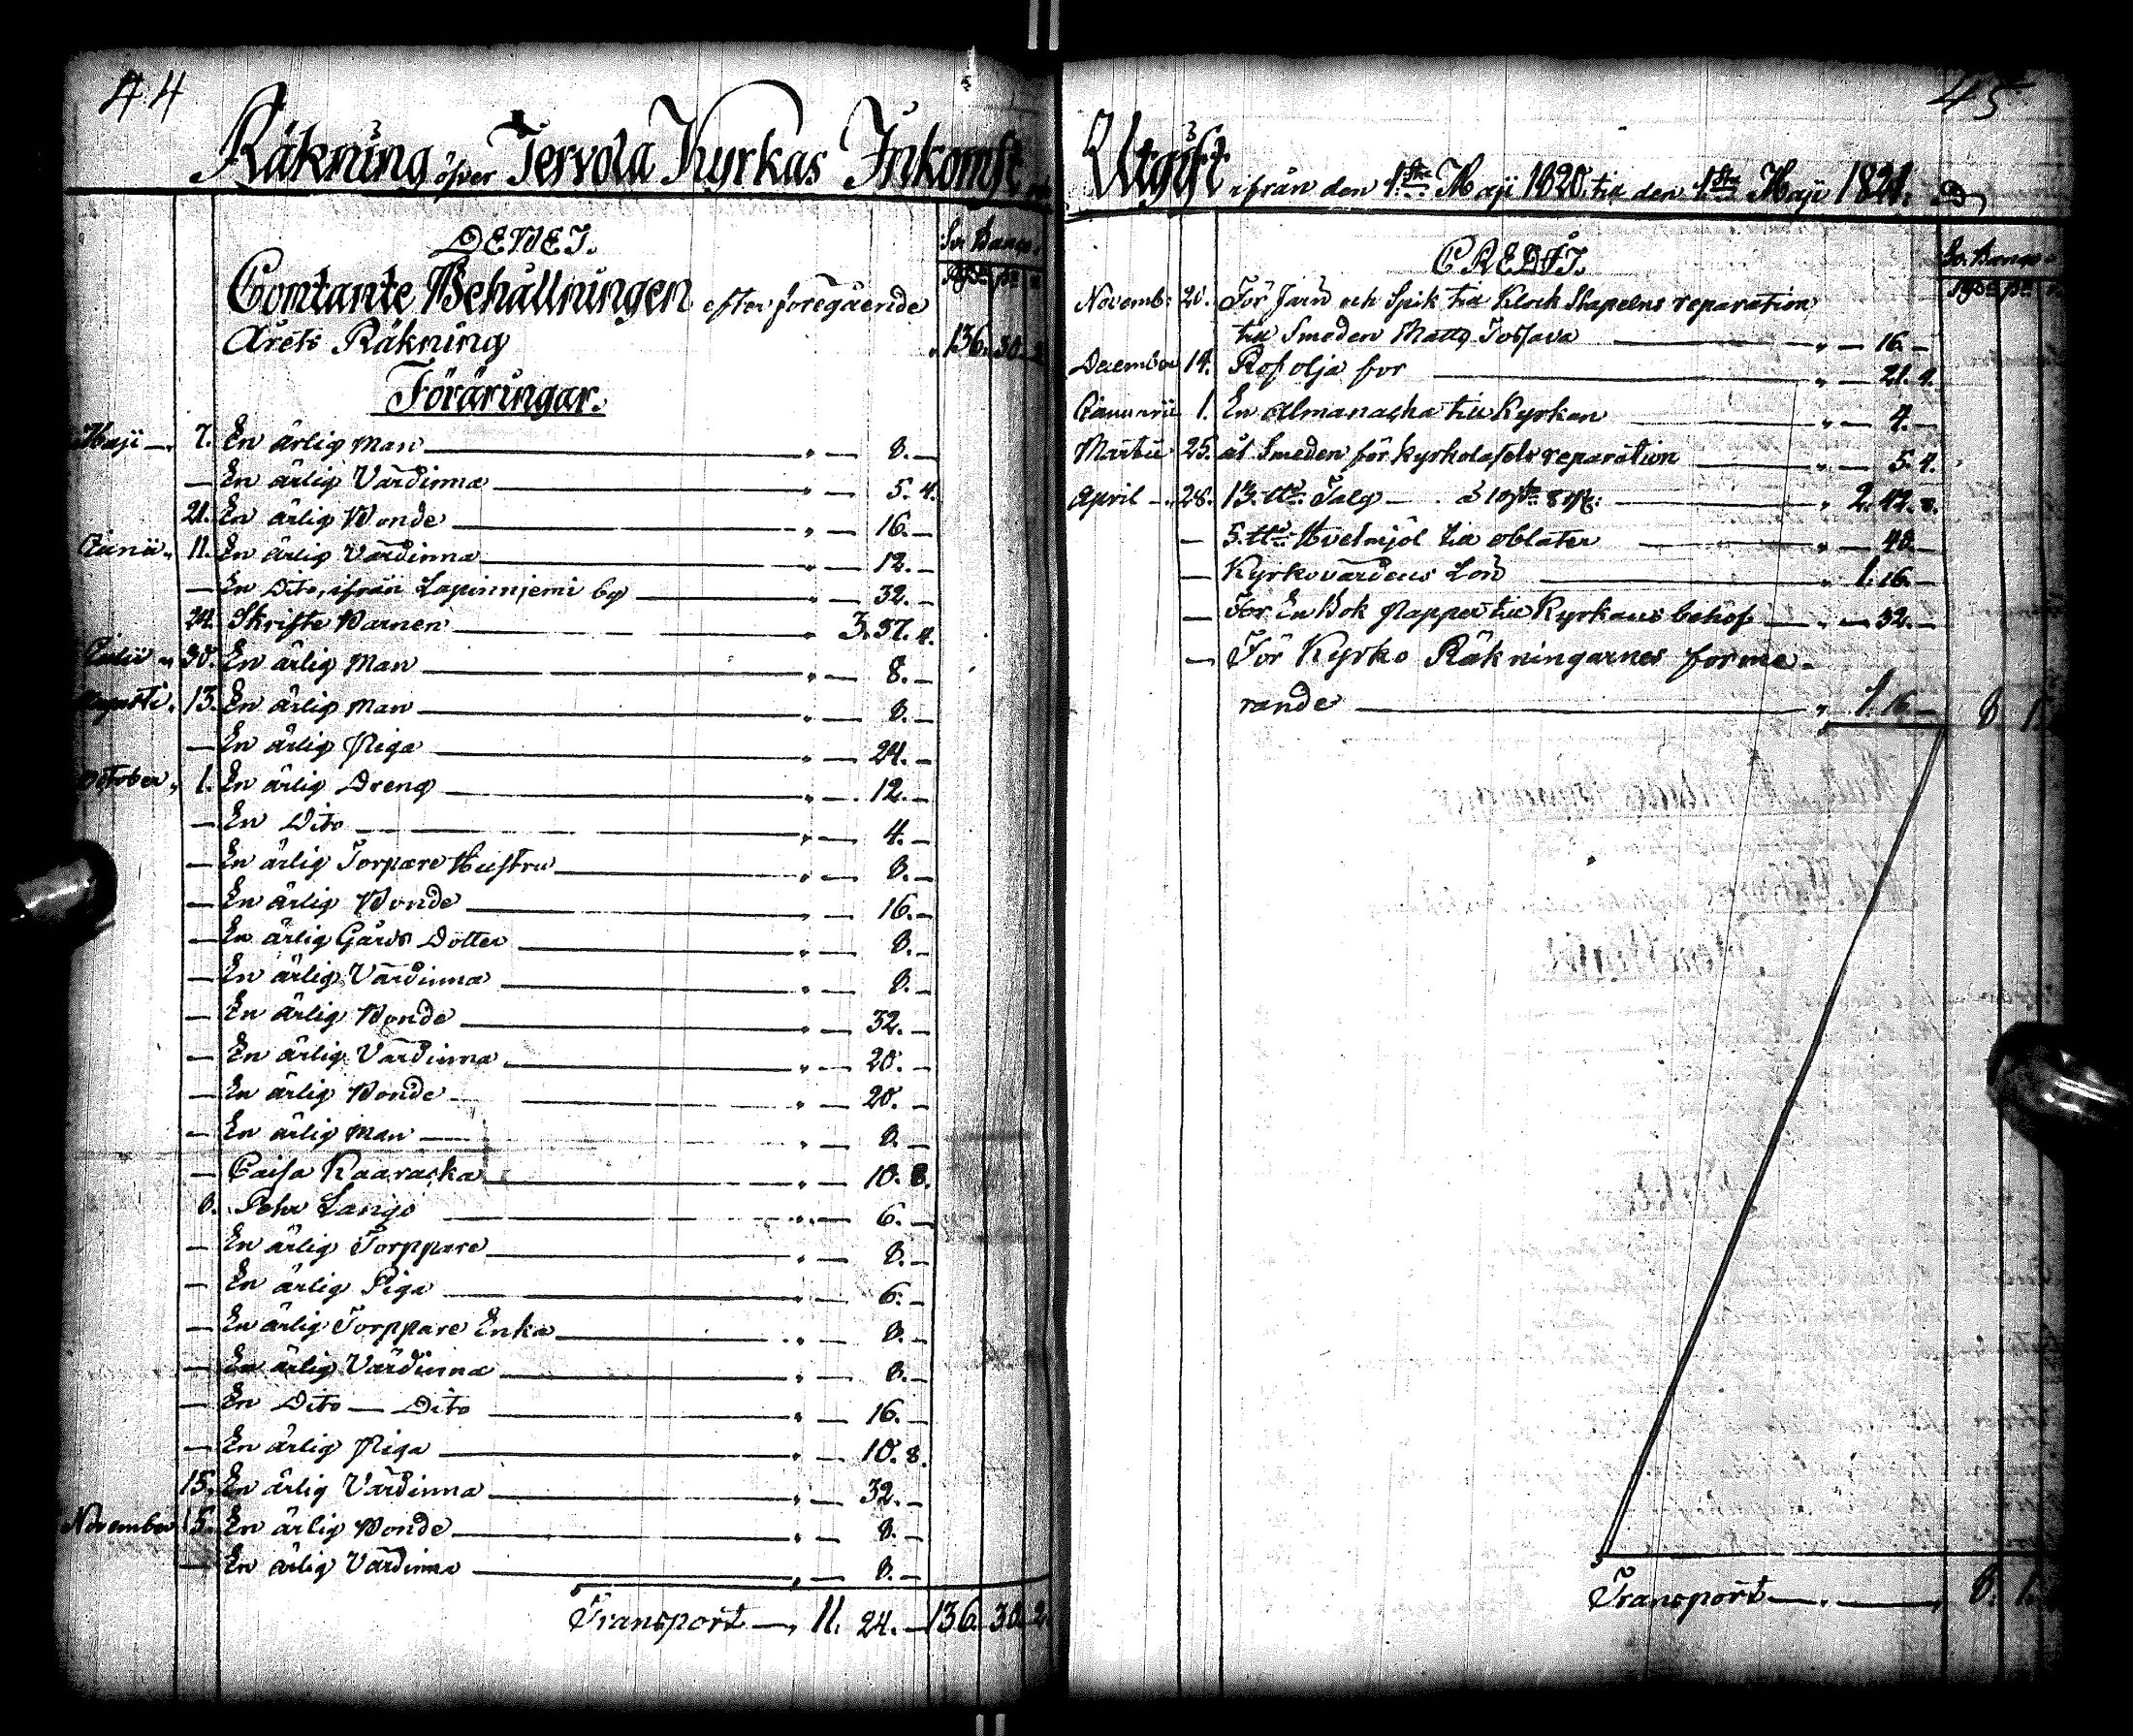 44
Räkning öfver Tervola Kyrkas Inkomst
DEBET.
Sv. Banco.
Contante Behållningen efter föregående
Årets Räkning " 136. 30. 2
Föräringar.
Maji — 7. En ärlig Man — " — 8. —
— En ärlig Värdinna — " — 5. 4.
21. En ärlig Bonde — " — 16. —
Junii " 11. En ärlig Värdinna — " — 12. —
— En Dito, ifrån Lapinniemi by — " — 32. —
24. Skrifte Barnen — " 3. 37. 4.
Julii " 30. En ärlig Man — " — 8. —
Augusti " 13. En ärlig Man — " — 8. —
— En ärlig Piga — " — 24. —
October " 1. En ärlig Dreng — " — 12. —
— En Dito — " — 4. —
— En ärlig Torpare Hustru — " — 8. —
— En ärlig Bonde — " — 16. —
— En ärlig Gårds Dotter — " — 8. —
— En ärlig Värdinna — " — 8. —
— En ärlig Bonde — " — 32. —
— En ärlig Värdinna — " — 20. —
— En ärlig Bonde — " — 20. —
— En ärlig Man — " — 8. —
— Caisa Kaaracka — " — 10. 8.
8. Pehr Längjö — " — 6. —
— En ärlig Torppare — " — 8. —
— En ärlig Piga — " — 6. —
— En ärlig Torppare Enka — " — 8. —
— En ärlig Värdinna — " — 8. —
— En Dito — Dito — " — 16. —
— En ärlig Piga — " — 10. 8.
15. En ärlig Värdinna — " — 32. —
November 15. En ärlig Bonde — " — 8. —
— En ärlig Värdinna — " — 8. —
Transport — " 11. 24. — 136. 30. 2
45
Utgift ifrån den 1sta Maji 1820 till den 1sta Maji 1821.
CREDIT.
Sv. Banco
Novemb: 20. För Järn och Spik till Klock Stapelns reparation
till Smeden Matts — " — 16. —
December 14. Rof olja för — " — 21. 4.
Januarii 1. En Almanacka till Kyrkan — " — 4. —
Martii 25. åt Smeden för kyrkolåsets reparation — " — 5. 4.
April — 28. 13. ℔ Talg — à — " 2. 42. 8.
— 5. ℔ Hvetmjöl till oblater — " — 40. —
— Kyrkovärdens Lön — " 1. 16. —
— För En Bok Papper till Kyrkans behof — " — 32. —
— För Kyrko Räkningarnes forme-
rande — " 1. 16. — 8. 1.
Transport — " — 8. 1.